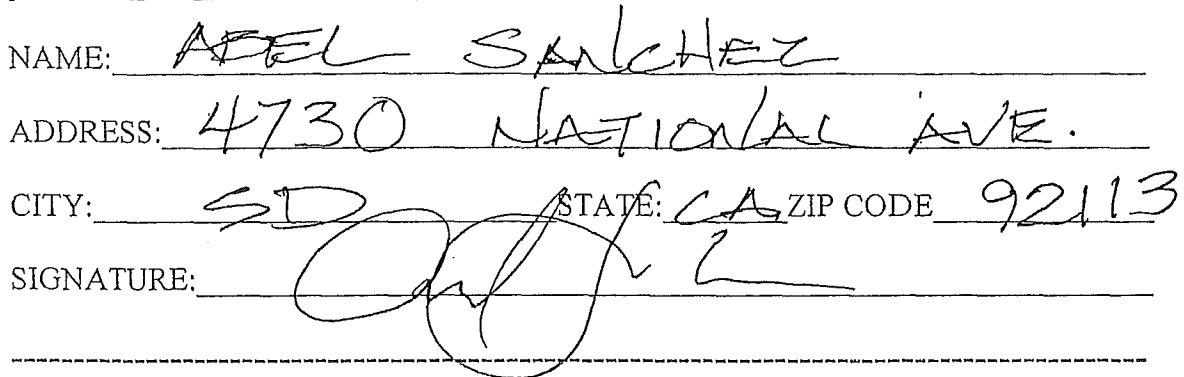 NAME: ABEL SANCHEZ
ADDRESS: 4730 NATIONAL AVE.
CITY: SD STATE: CA ZIP CODE 92113
SIGNATURE: